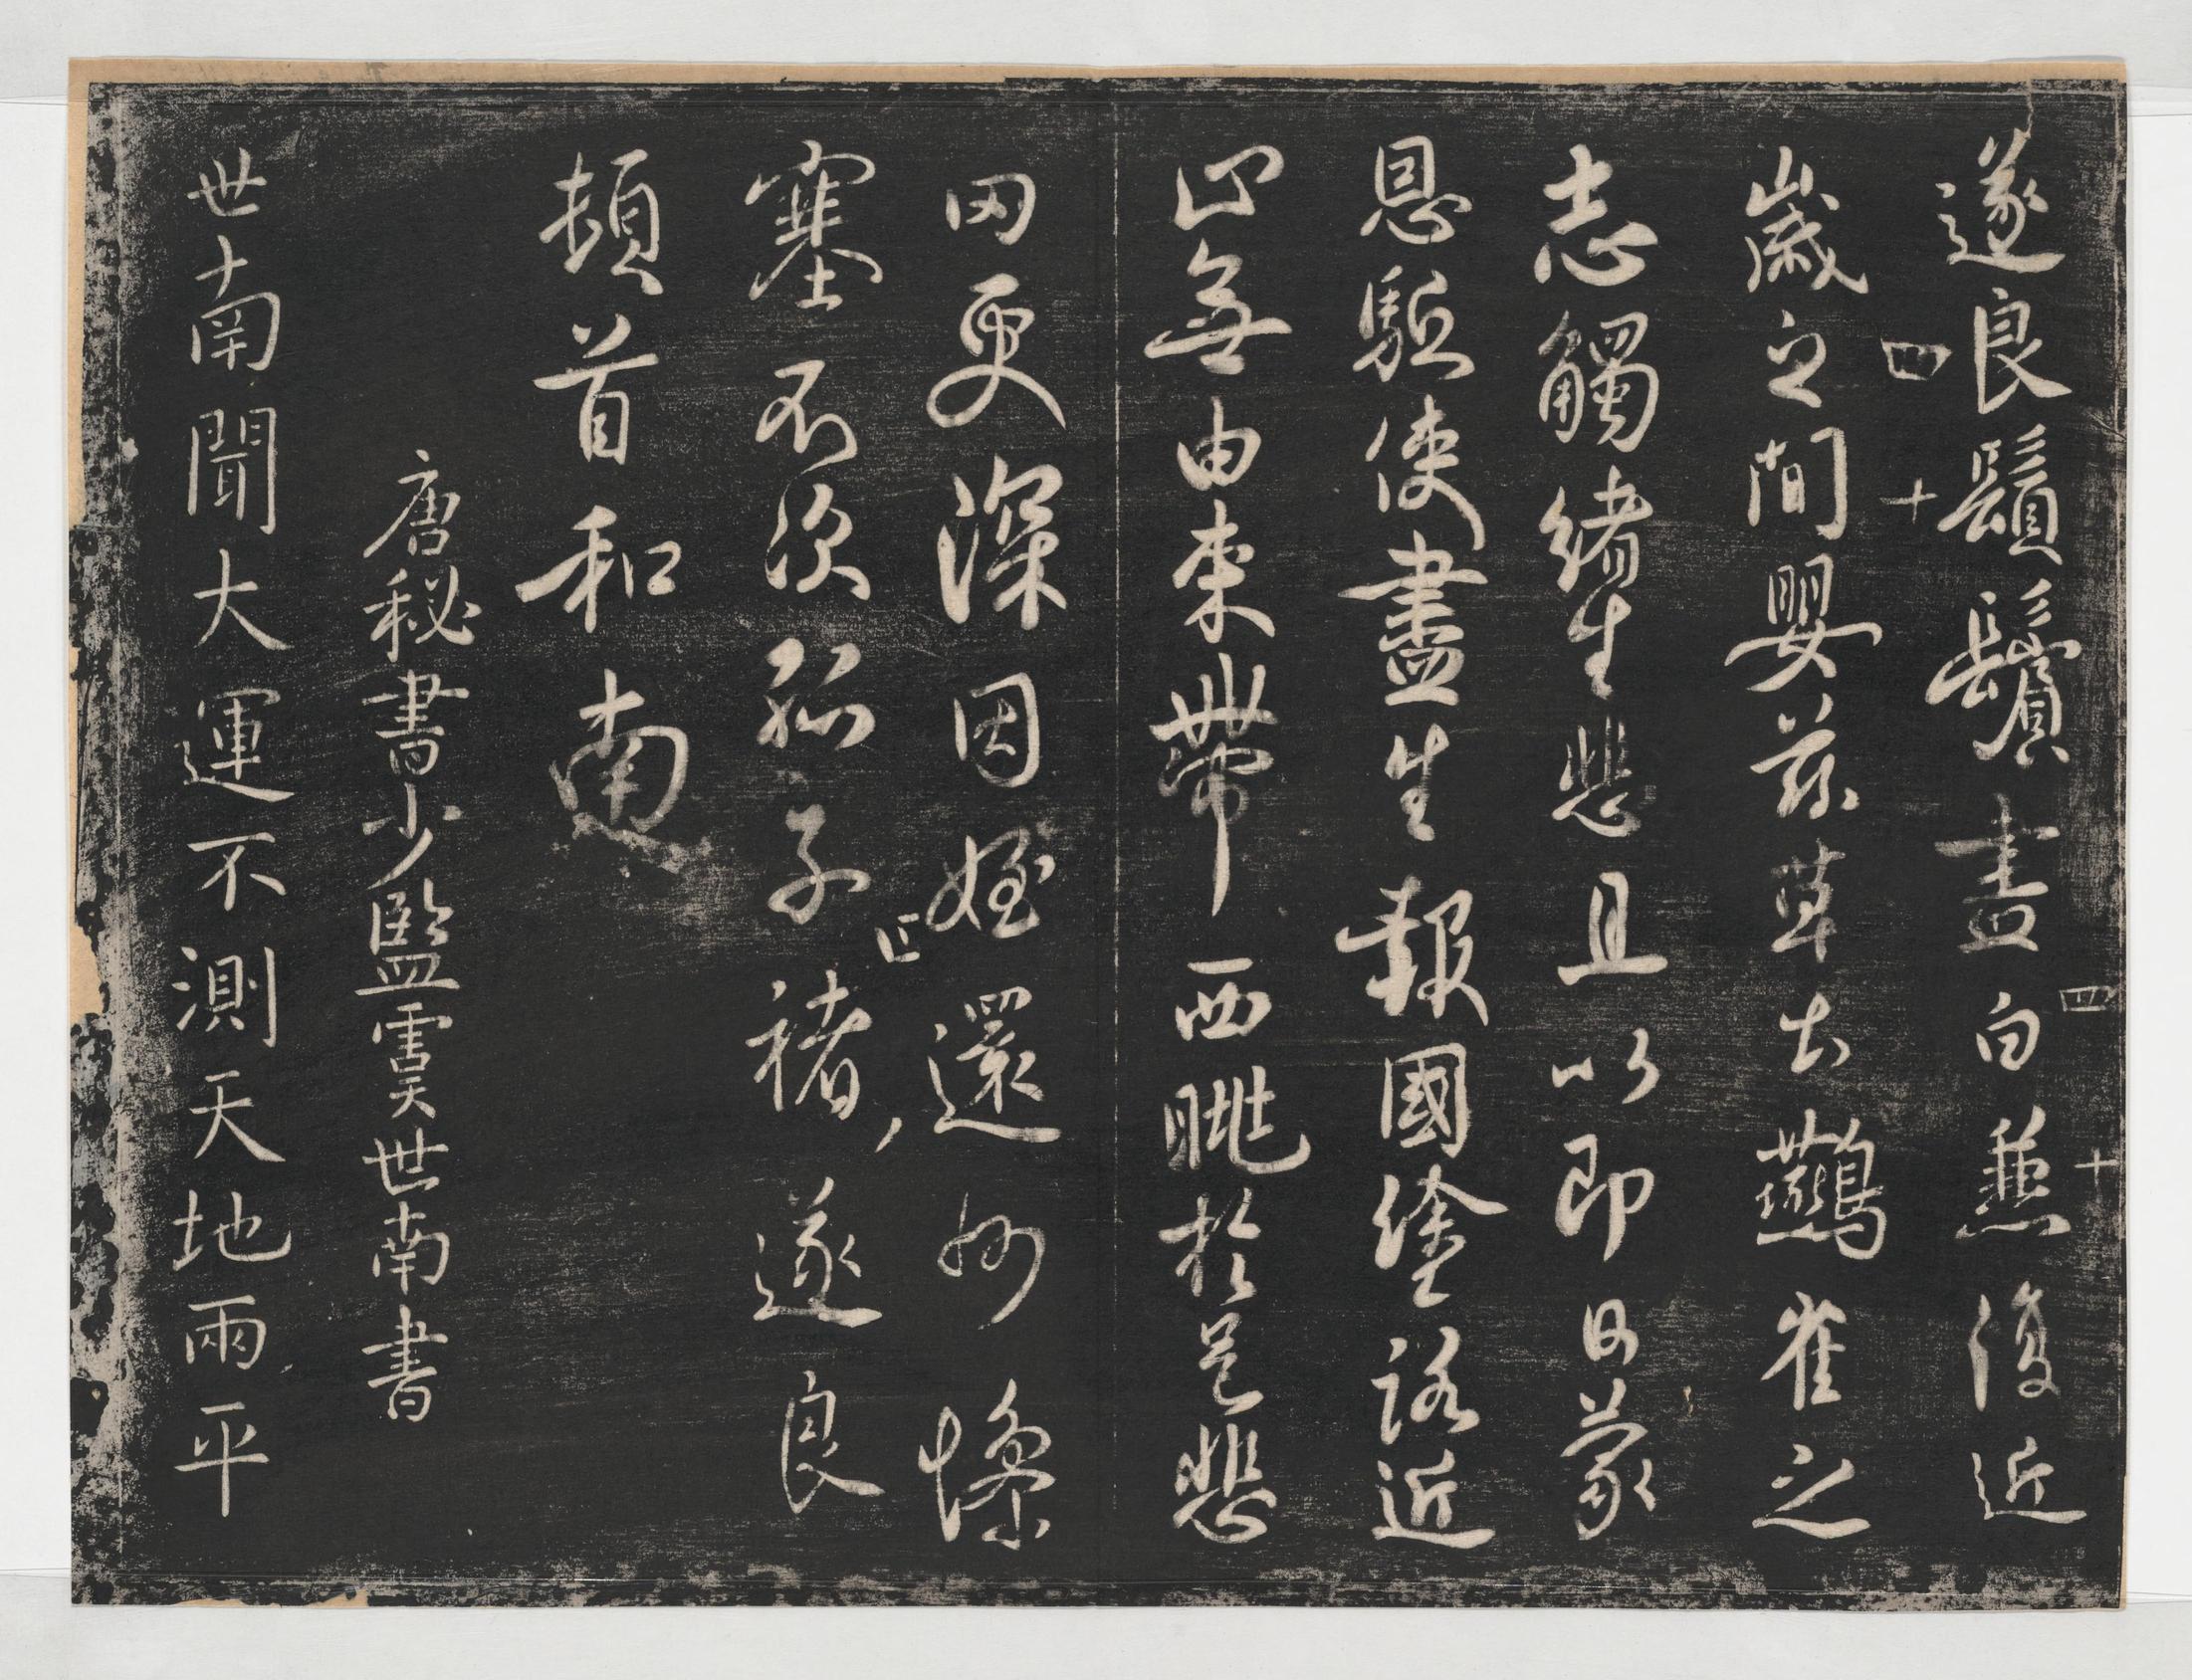 遂良鬚鬢盡白兼復近
歲之間嬰茲草土鷰雀之
志觸緒生悲且以即日蒙
恩驅使盡生報國塗路近
止無由束帶西眺於邑悲
罔更深因姪還州慘
塞不次孤子褚遂良
頓首和南
唐秘書少監虞世南書
世南聞大運不測天地兩平
四十
四十